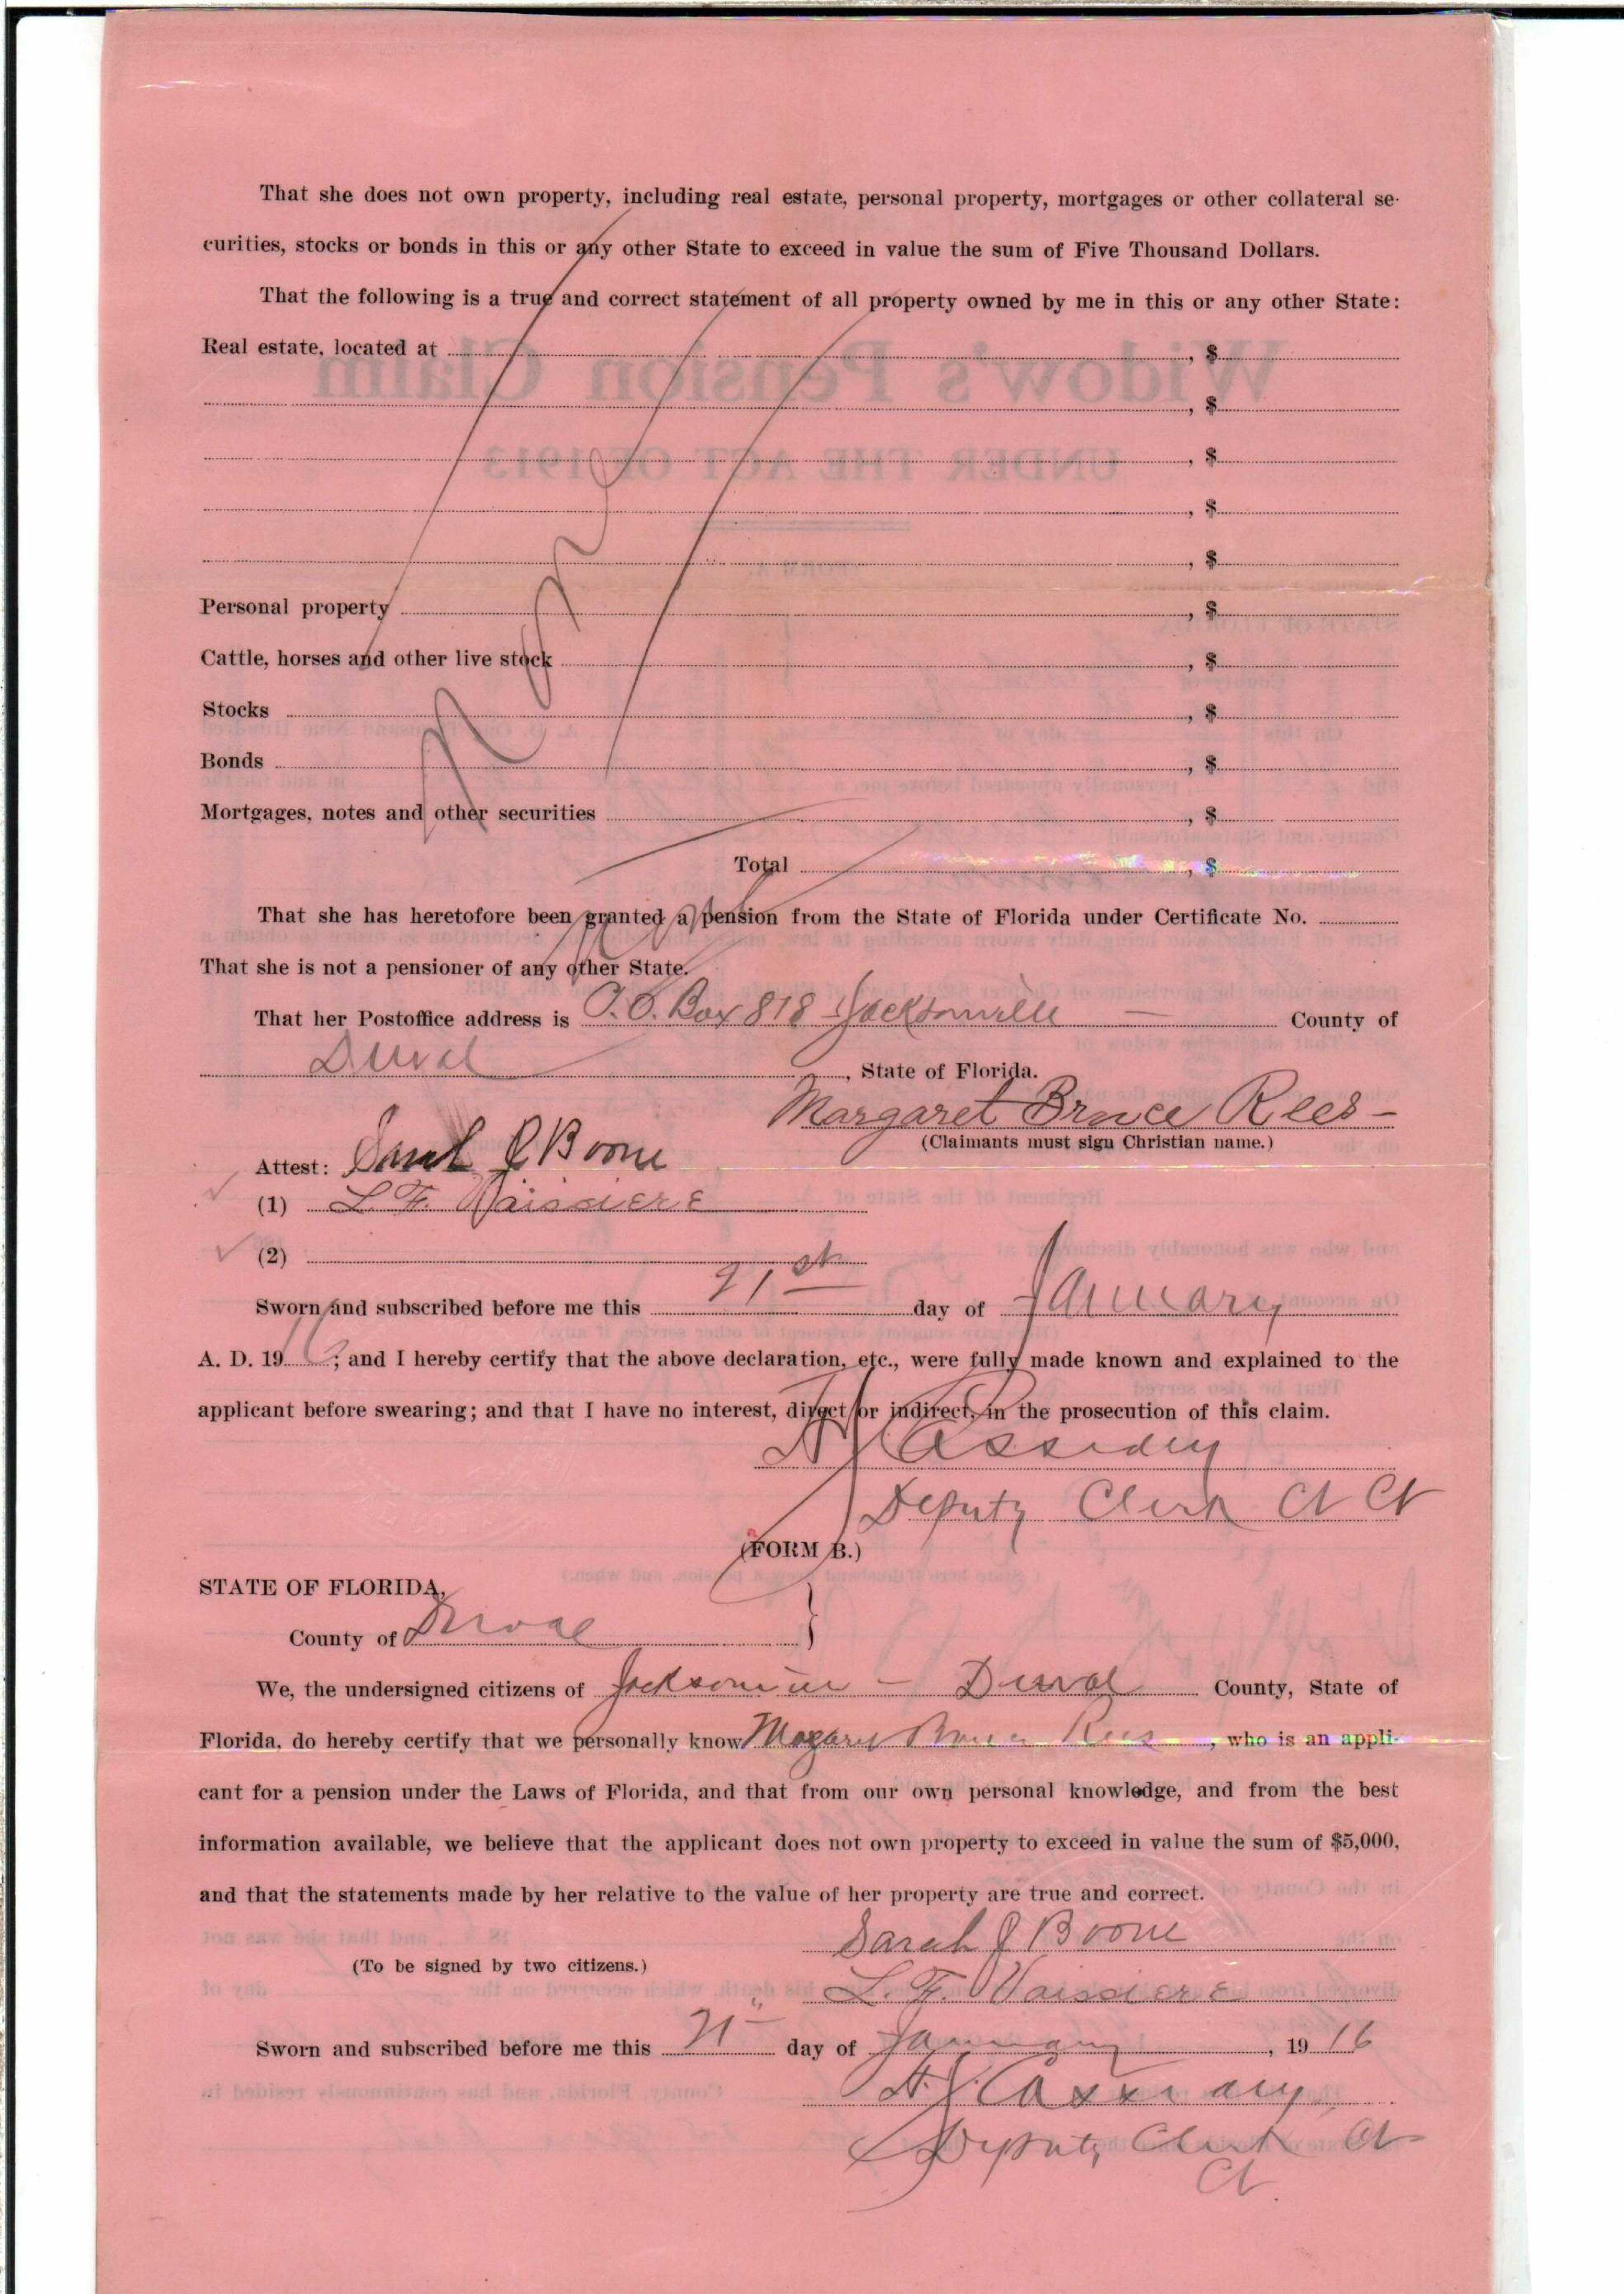 That she does not own property, including real estate, personal property, mortgages or other collateral se-
curities, stocks or bonds in this or any other State to exceed in value the sum of Five Thousand Dollars.
That the following is a true and correct statement of all property owned by me in this or any other State:
Real estate, located at , $
, $
, $
, $
, $
Personal property , $
Cattle, horses and other live stock , $
Stocks , $
Bonds , $
Mortgages, notes and other securities , $
Total , $
That she has heretofore been granted a pension from the State of Florida under Certificate No.
That she is not a pensioner of any other State.
That her Postoffice address is P. O. Box 818 Jacksonville County of
Duval , State of Florida.
Margaret Bruce Rees
(Claimants must sign Christian name.)
Attest: Sarah J Boone
(1) L. F. Vaissiere
(2)
Sworn and subscribed before me this 21st day of January
A. D. 19 16; and I hereby certify that the above declaration, etc., were fully made known and explained to the
applicant before swearing; and that I have no interest, direct or indirect, in the prosecution of this claim.
Cassidey
Deputy Clerk Ct Ct
(FORM B.)
STATE OF FLORIDA,
County of Duval }
We, the undersigned citizens of Jacksonville - Duval County, State of
Florida, do hereby certify that we personally know Margaret Bruce Rees, who is an appli-
cant for a pension under the Laws of Florida, and that from our own personal knowledge, and from the best
information available, we believe that the applicant does not own property to exceed in value the sum of $5,000,
and that the statements made by her relative to the value of her property are true and correct.
Sarah J Boone
(To be signed by two citizens.)
L. F. Vaissiere
Sworn and subscribed before me this 21" day of January, 19 16
Cassidey
Deputy Clerk Ct
Ct